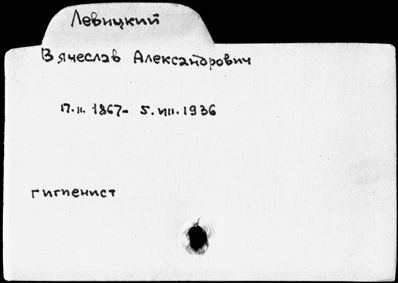 Левицкий
Вячеслав Александрович
17.II.1867- 5.VIII.1936
гигиенист